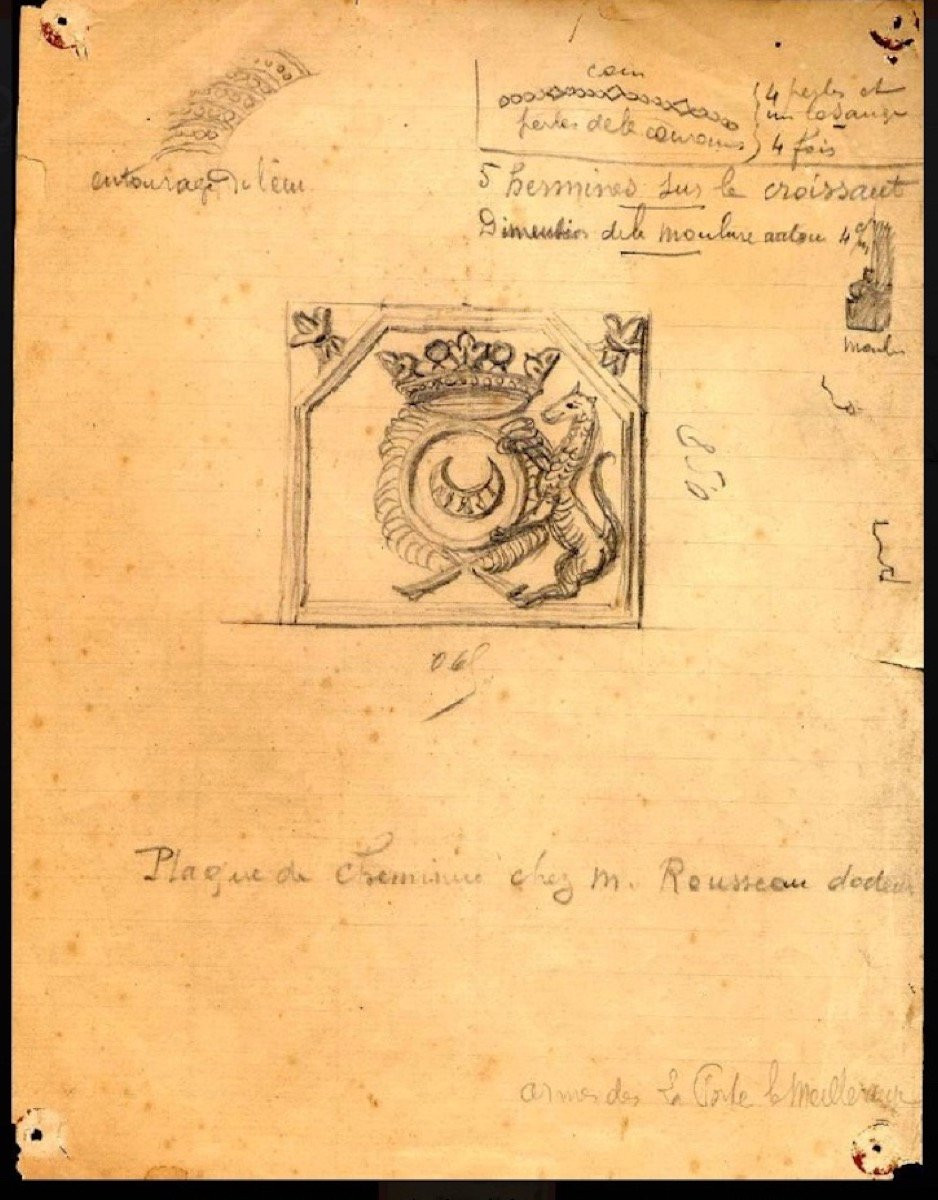 coin
perles de la couronne
4 perles et
un losange
4 fois
entourage de l'écu
5 hermines sur le croissant
Dimension de la moulure autour 4
050
065
Plaque de cheminée chez M. Rousseau docteur
armes des La Porte la Meilleraye